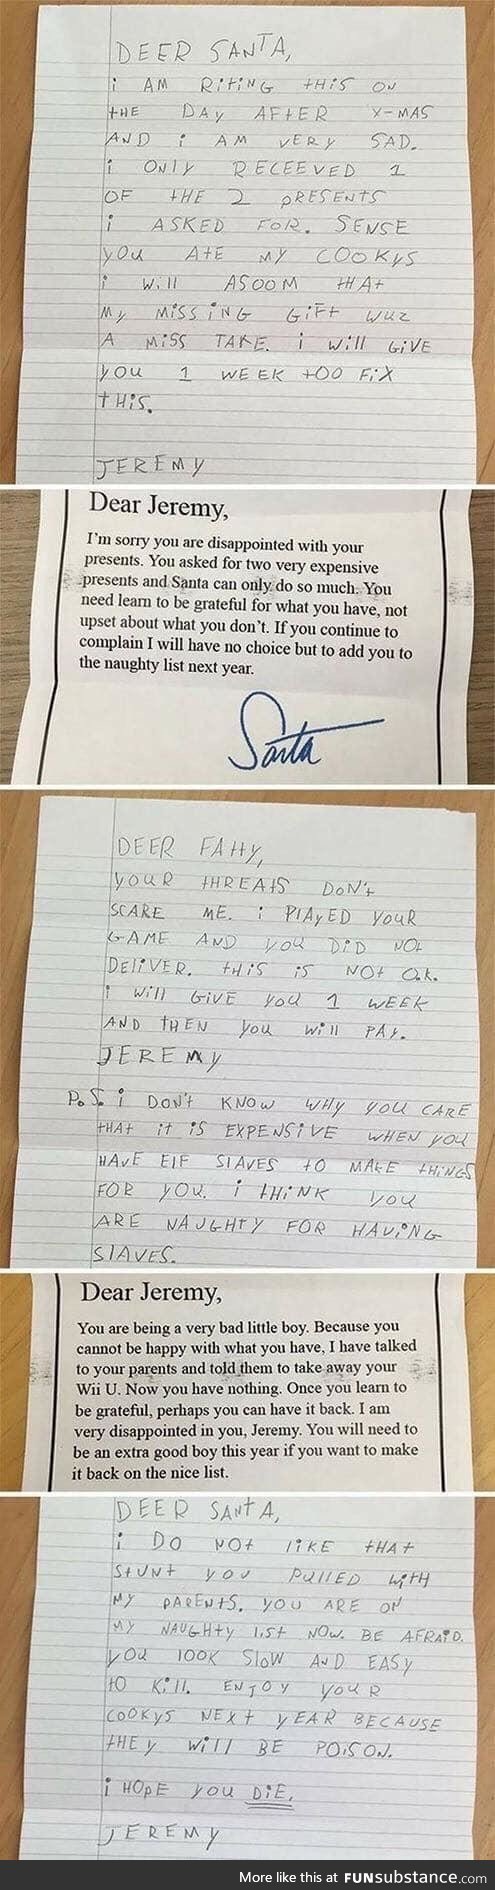 DEER SANTA,
i AM RiTiNG tHiS ON
tHE DAY AFTER X-MAS
AND i AM VERY SAD.
i ONlY RECEEVED 1
OF tHE 2 PRESENTS
i ASKED FOR. SENSE
YOU AtE MY COOKYS
i Will ASOOM tHAt
MY MiSSiNG GiFt WUZ
A MiSS TAKE. i Will GiVE
YOU 1 WEEK tOO FiX
tHiS.
JEREMY
Dear Jeremy,
I'm sorry you are disappointed with your
presents. You asked for two very expensive
presents and Santa can only do so much. You
need learn to be grateful for what you have, not
upset about what you don't. If you continue to
complain I will have no choice but to add you to
the naughty list next year.
Santa
DEER FAttY,
YOUR tHREAtS DON't
SCARE ME. i PlAYED YOUR
GAME AND YOU DiD NOt
DEliVER. tHiS iS NOt O.K.
i Will GiVE YOU 1 WEEK
AND tHEN YOU Will PAY.
JEREMY
P.S. i DON't KNOW WHY YOU CARE
tHAt it iS EXPENSiVE WHEN YOU
HAVE ElF SlAVES tO MAKE tHiNGS
FOR YOU. i tHiNK YOU
ARE NAUGHtY FOR HAViNG
SlAVES.
Dear Jeremy,
You are being a very bad little boy. Because you
cannot be happy with what you have, I have talked
to your parents and told them to take away your
Wii U. Now you have nothing. Once you learn to
be grateful, perhaps you can have it back. I am
very disappointed in you, Jeremy. You will need to
be an extra good boy this year if you want to make
it back on the nice list.
DEER SANtA,
i DO NOt liKE tHAt
StUNt YOU PUllED WitH
MY PARENtS. YOU ARE ON
MY NAUGHtY liSt NOW. BE AFRAiD.
YOU lOOK SlOW AND EASY
tO Kill. ENJOY YOUR
COOKYS NEXt YEAR BECAUSE
tHEY Will BE POiSON.
i HOPE YOU DiE.
JEREMY
More like this at FUNsubstance.com